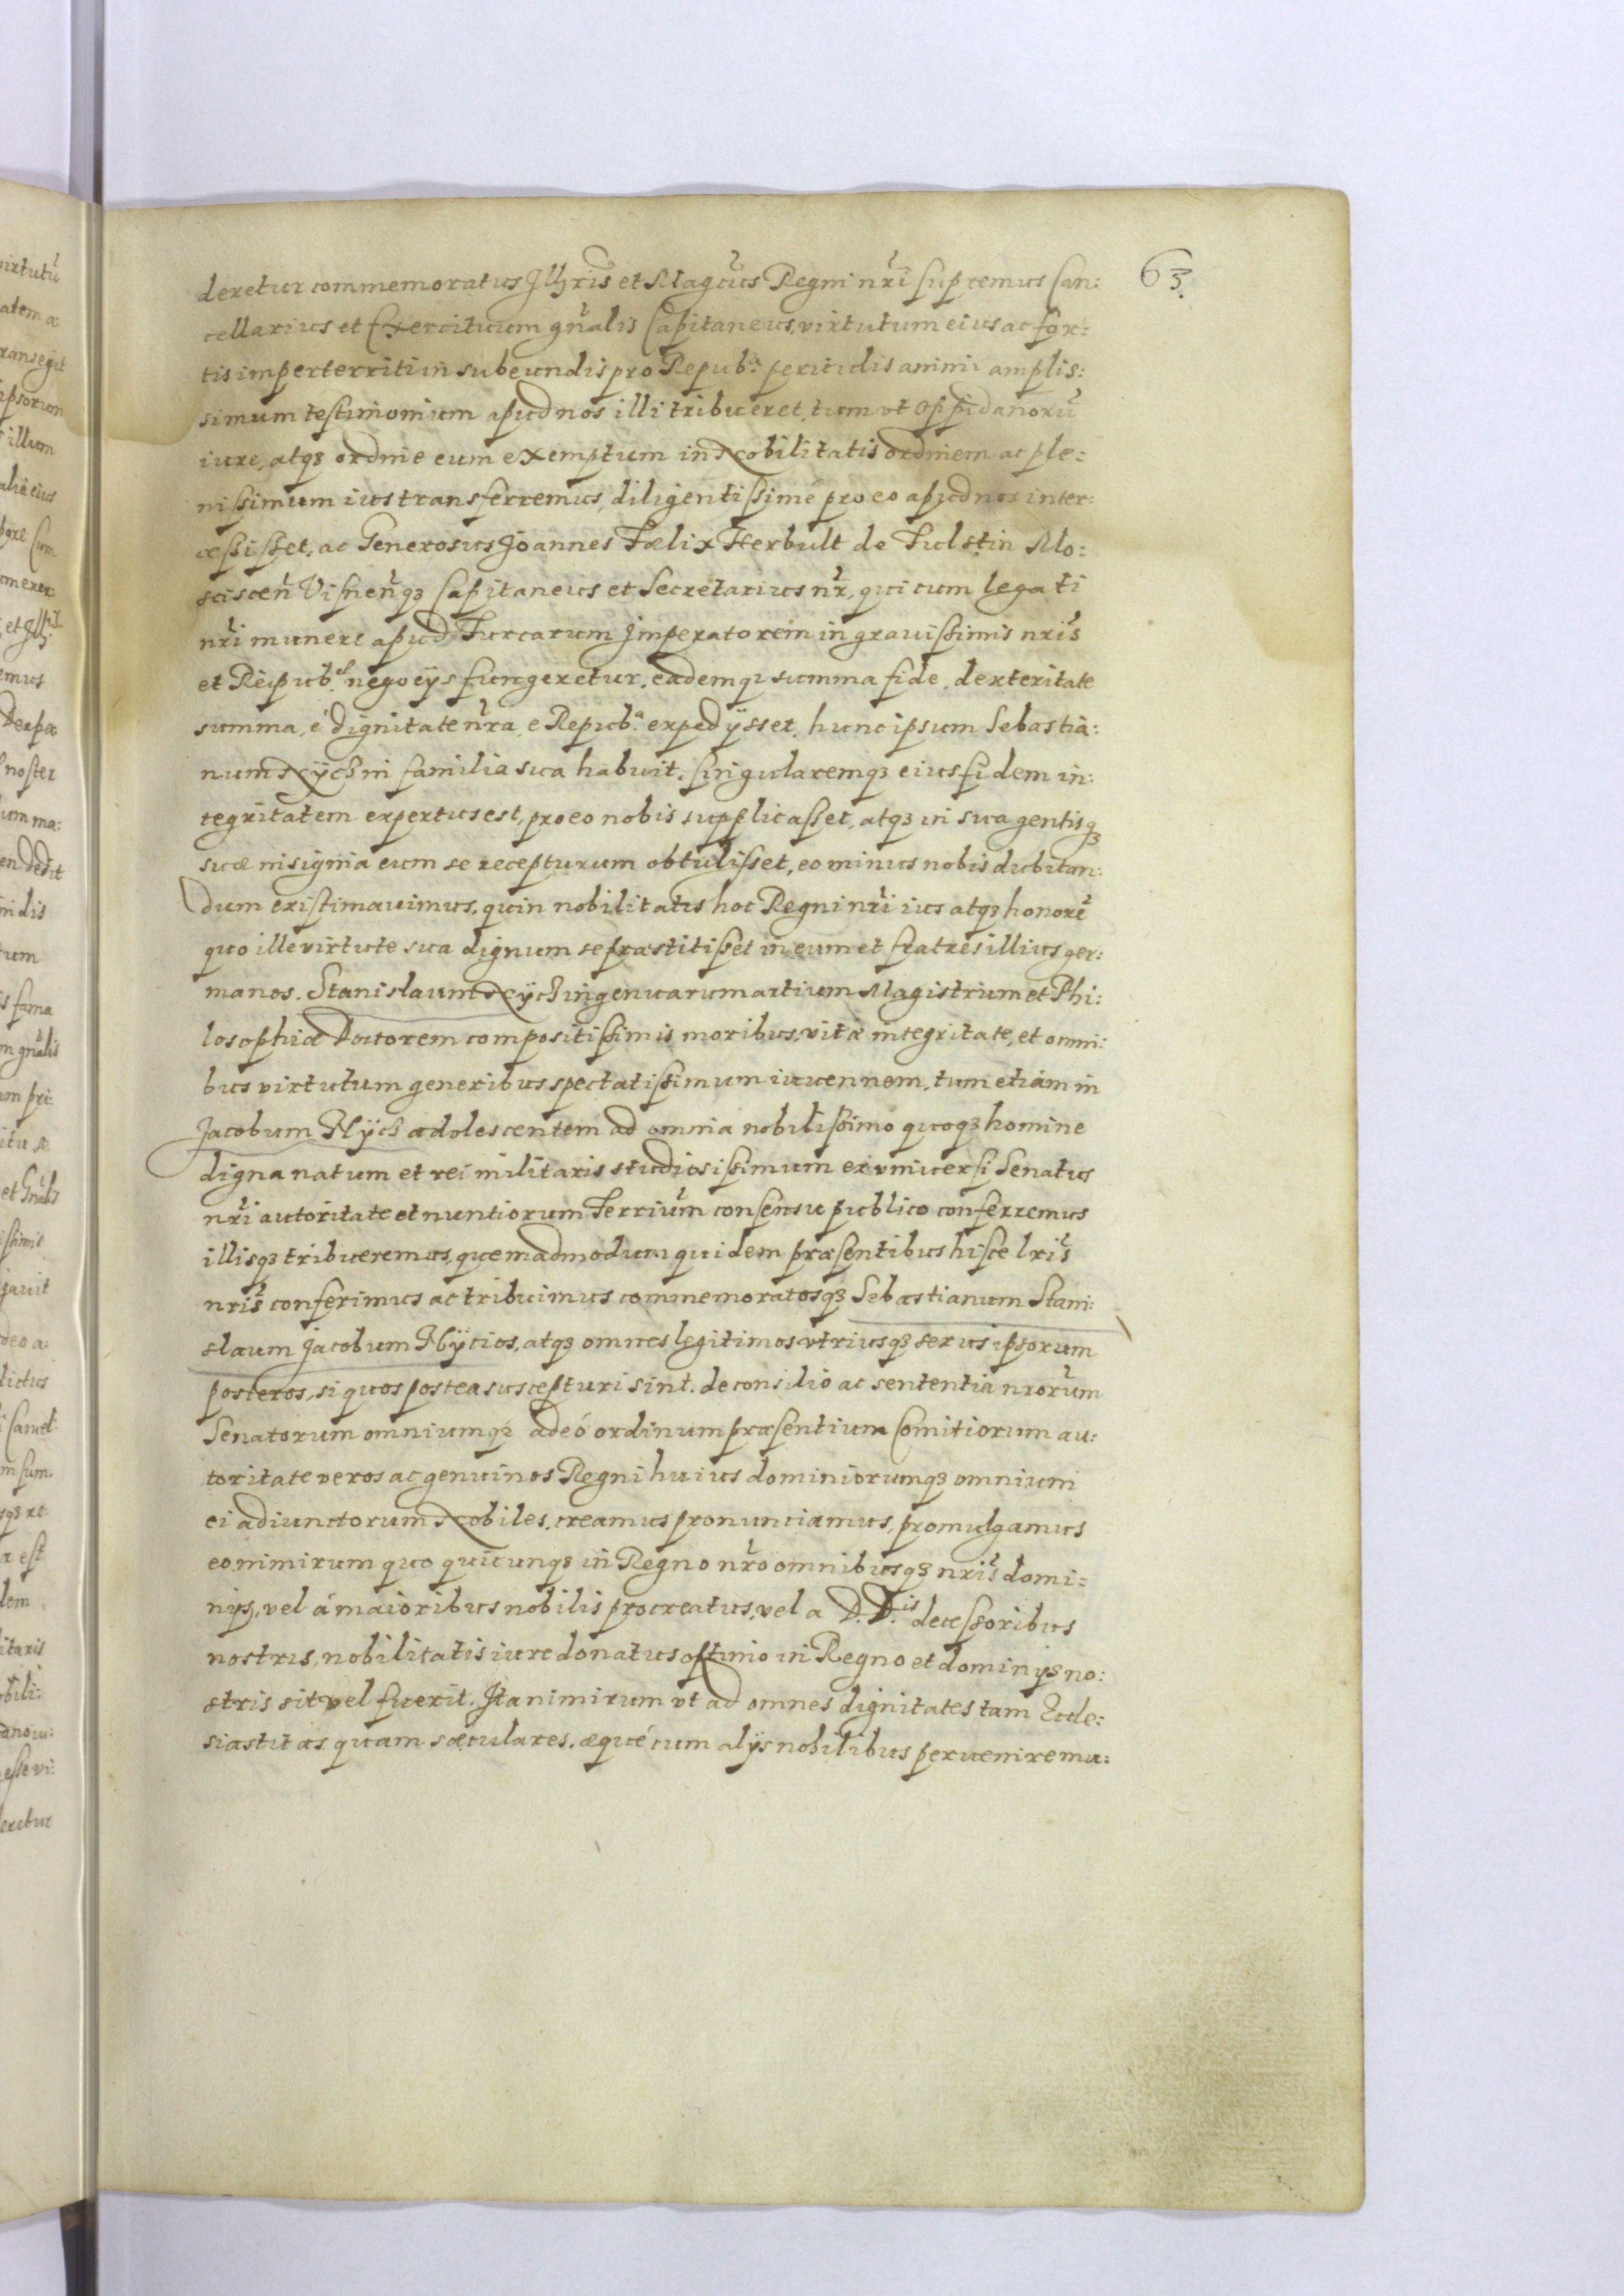 63.
deretur commemoratus Illris et Magcus Regni nri supremus Can:
cellarius et Exercituum gnalis Capitaneus, virtutum eius ac for:
tis imperterriti in subeundis pro Repub.ca periculis animi amplis:
simum testimonium apud nos illi tribueret, tum vt oppidanorũ
iure, atqȝ ordine eum exemptum in Nobilitatis ordinem ac ple:
nissimum ius transferremus, diligentissimé pro eo apud nos inter:
cessisset, ac Generosus Joannes Fœlix Herbult de Fulstin Mo:
sciscen̄ Visnen̄qȝ Capitaneus et Secretarius nr, qui cum legati
nri munere apud Turcarum Imperatorem in gravissimis nris
et Reipub. negocÿs fungeretur, eademqȝ summa fide, dexteritate
summa, é dignitate nra, e Repub.a expedÿsset, hunc ipsum Sebastia:
num Nÿch in familia sua habuit, singularemqȝ eius fidem in:
tegritatem expertus est, pro eo nobis supplicasset, atqȝ in sua gentisqȝ
suæ insignia eum se recepturum obtulisset, eo minus nobis dubitan:
dum existimauimus, quin nobilitatis hoc Regni nri ius atqȝ honorẽ
quo ille virtute sua dignum se præstitisset in eum et fratres illius ger:
manos. Stanislaum Nÿch ingenuarum artium Magistrum et Phi:
losophiæ Doctorem compositissimis moribus, vitæ integritate, et omni:
bus virtutum generibus spectatissimum iuuennem, tum etiam in
Jacobum Nÿch adolescentem ad omnia nobilissimo quoqȝ homine
digna natum et rei militaris studiosissimum ex vniuersi Senatus
nri autoritate et nuntiorum Terrium consensu publico conferremus
illisqȝ tribueremus, quemadmodum quidem præsentibus hisce lris
nris conferimus ac tribuimus commemoratosqȝ Sebastianum Stani:
slaum Jacobum Nÿcios, atqȝ omnes legitimos vtriusqȝ sexus ipsorum
posteros, si quos postea suscepturi sint, de consilio ac sententia nrorum
Senatorum omniumqȝ adeó ordinum præsentium Comitiorum au:
toritate veros ac genuinos Regni huius dominiorumqȝ omnium
ei adiunctorum Nobiles, creamus pronunciamus, promulgamus
eo nimirum quo quicunqȝ in Regno nro omnibusqȝ nris domi=
nÿs, vel á maioribus nobilis procreatus, vel a D. D.is decessoribus
nostris, nobilitatis iure donatus optimo in Regno et dominÿs no:
stris sit vel fuerit. Ita nimirum vt ad omnes dignitates tam Eccle:
siasticas quam sæculares, æqué cum alÿs nobilibus peruenire mu: